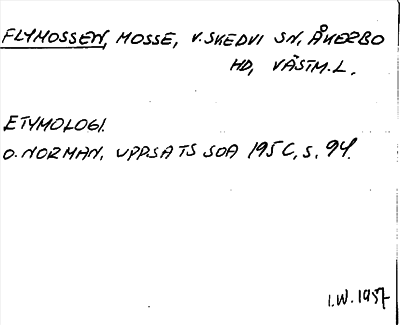 FLYMOSSEN, MOSSE, V. SKEDVI SN, ÅKERBO
HD, VÄSTM. L.
ETYMOLOGI.
O. NORMAN, UPPSATS SOA 195C, S. 94.
I.W. 1957